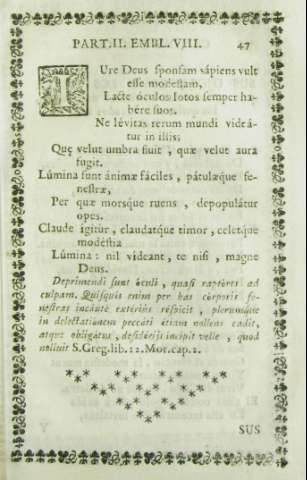 PART.II. EMBL.VIII. 47
IUre Deus sponsam sápiens vult
esse modestam,
Lacte óculos lotos semper ha-
bére suos.
Ne lévitas rerum mundi videá-
tur in illis;
Quę velut umbra fluit, quæ velut aura
fugit.
Lúmina sunt ánimæ fáciles, pátulæque fe-
nestræ,
Per quæ morsque ruens, depopulátur
opes.
Claude igitùr, claudatque timor, celetque
modéstia
Lúmina: nil videant, te nisi, magne
Deus.
Deprimendi sunt óculi, quasi raptóres ad
culpam. Quisquis enim per has córporis fe-
nestras incáutè extérius réspicit, plerumque
in delectatiónem peccáti étiam nollens cadit,
atque obligátus, desidériis incipit velle, quod
nolluit S.Greg.lib.12.Mor.cap.2.
SUS